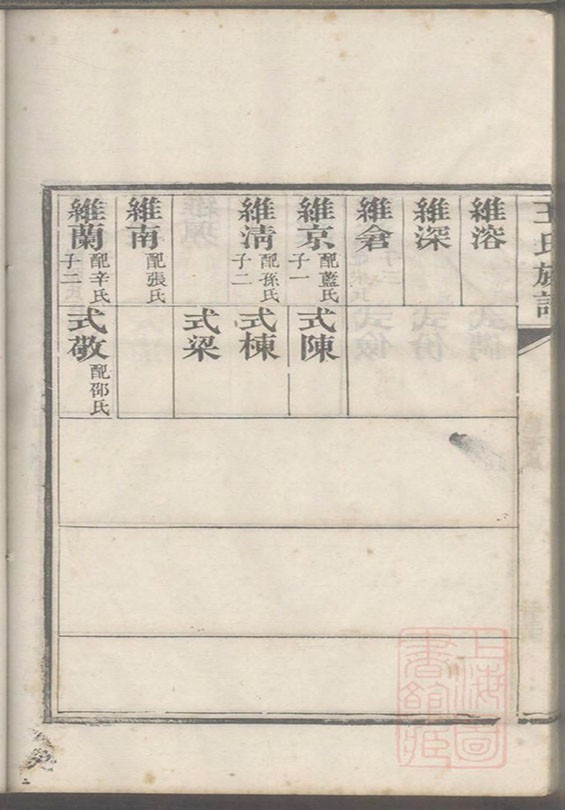 王氏族譜
維溶
維深
維倉
維京 配藍氏
子一
維清 配孫氏
子二
維南 配張氏
維蘭 配辛氏
子二
式陳
式棟
式梁
式敬 配邵氏
上海圖
書館藏